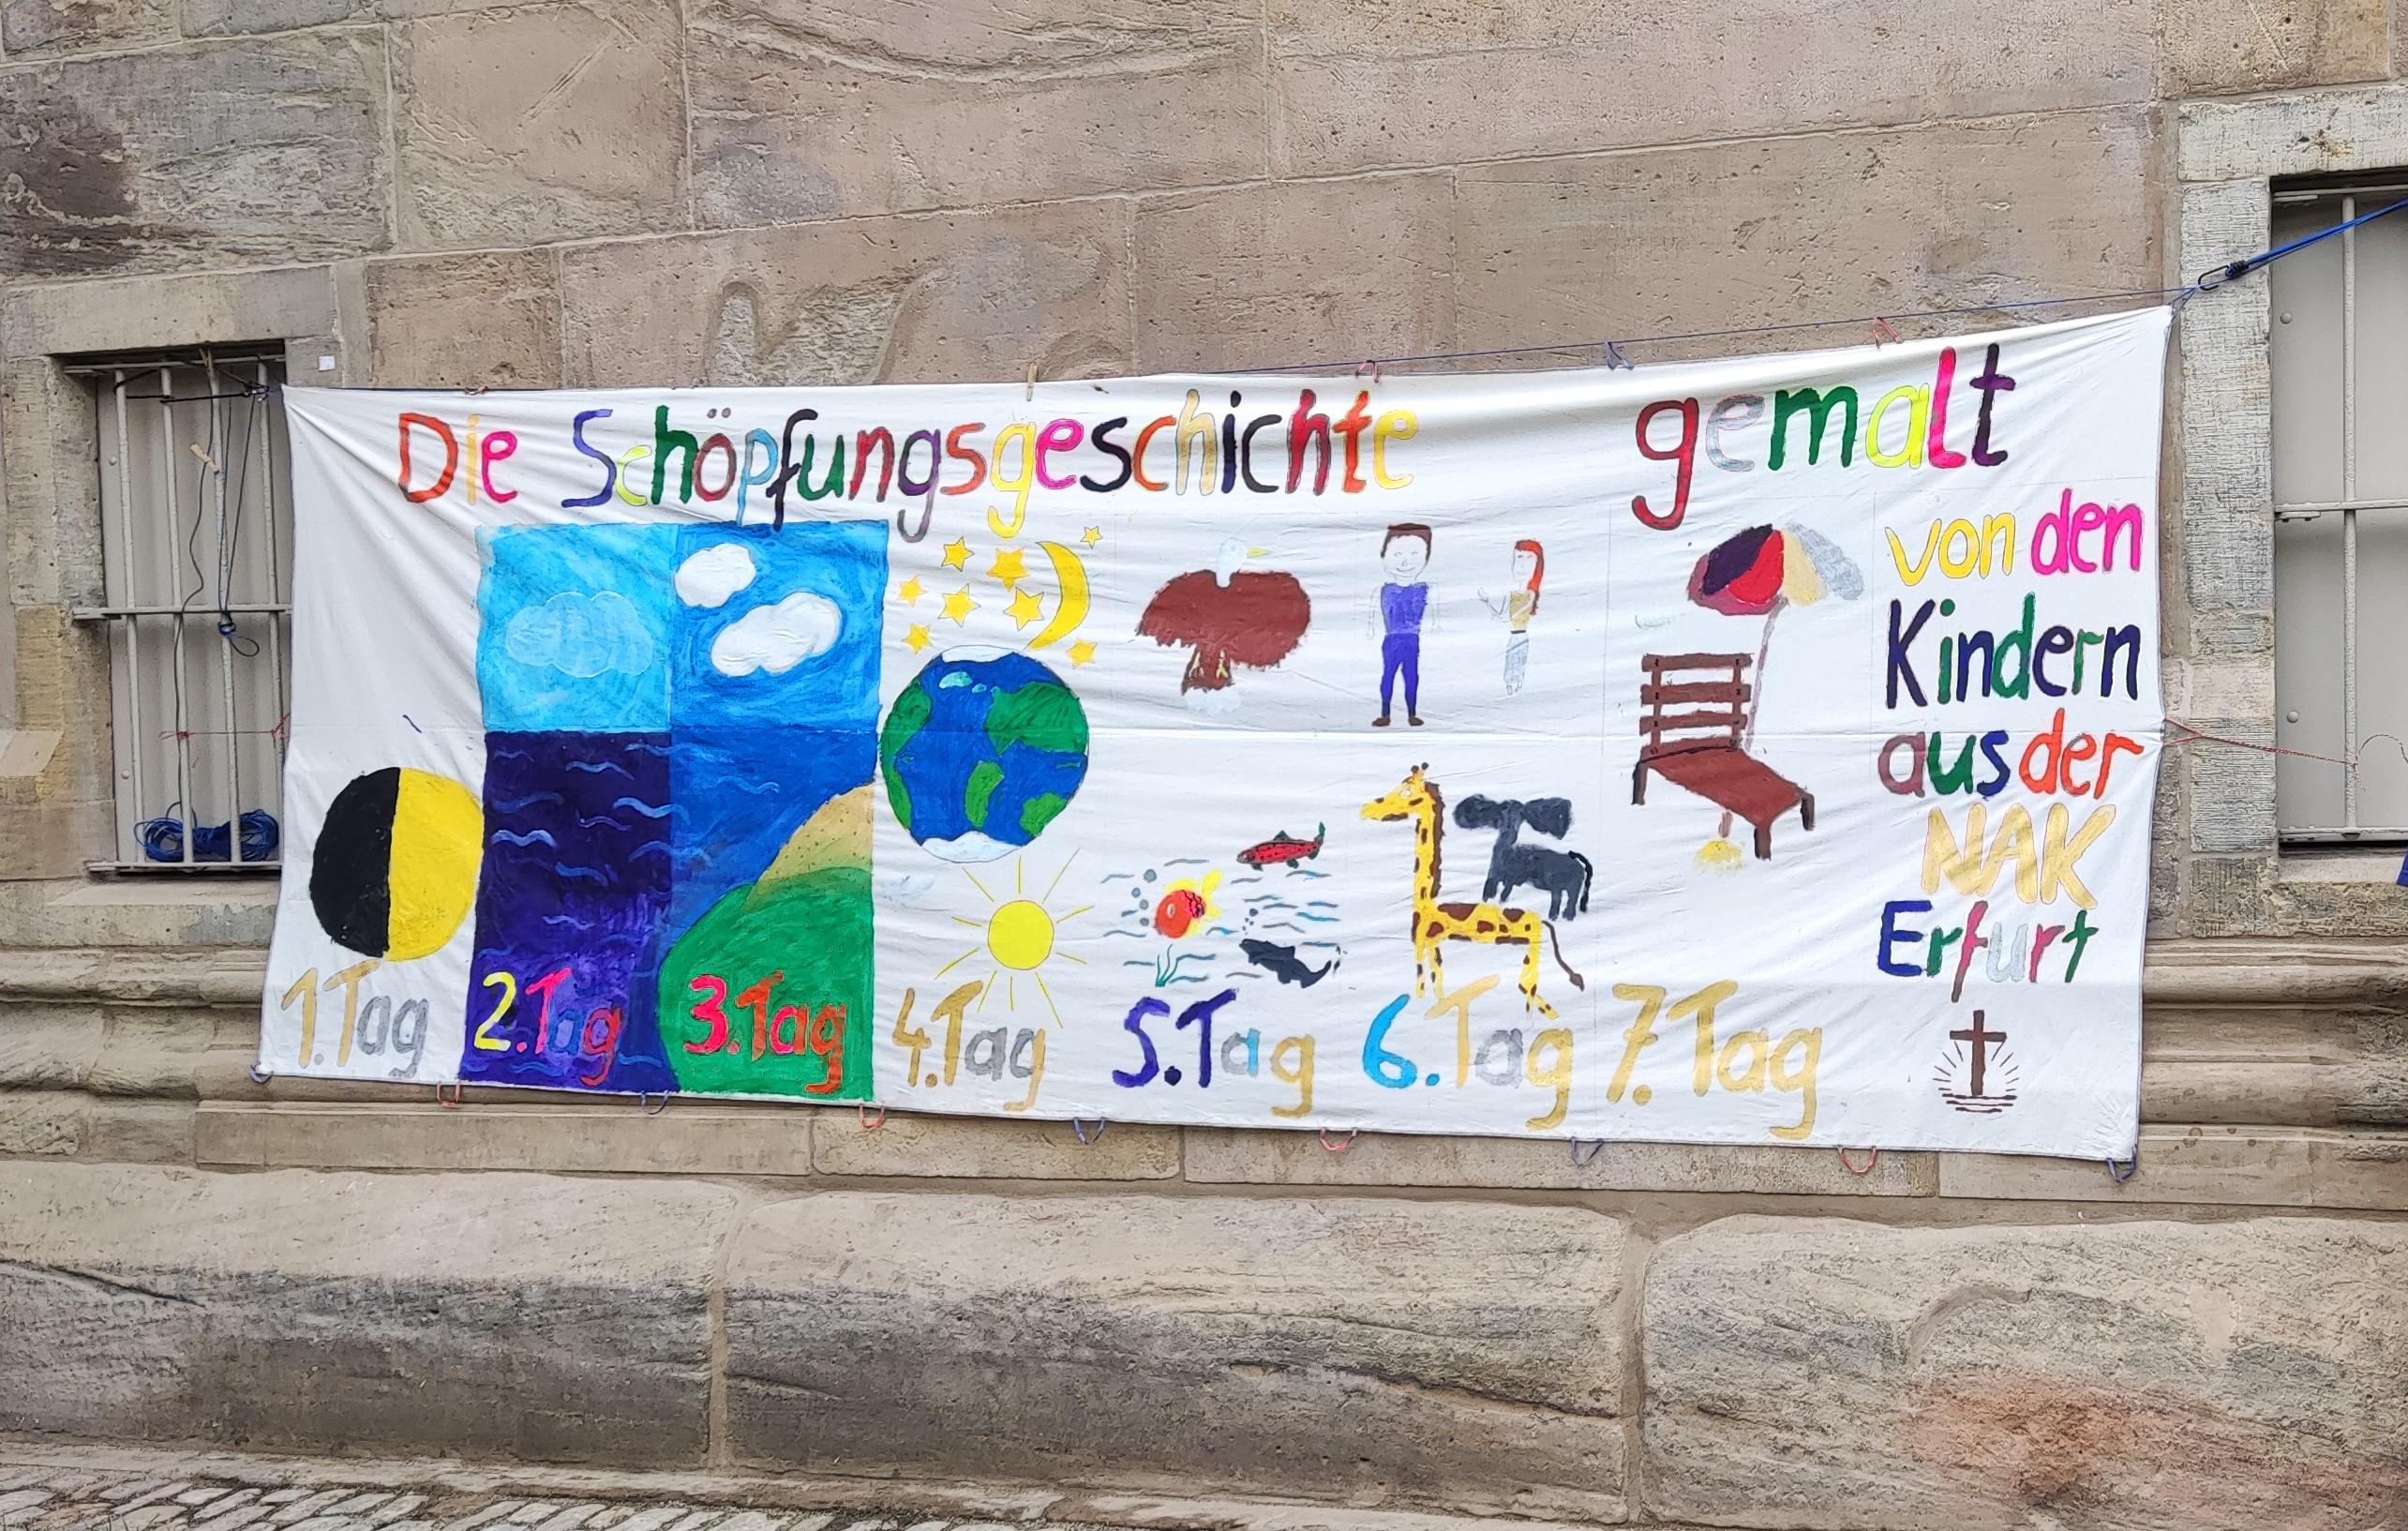 Die Schöpfungsgeschichte gemalt
von den
Kindern
aus der
NAK
Erfurt
1. Tag 2. Tag 3. Tag 4. Tag 5. Tag 6. Tag 7. Tag